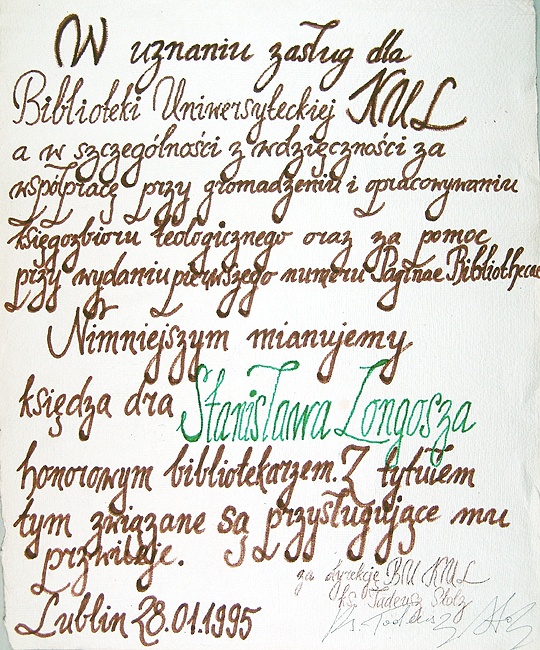 W uznaniu zasług dla
Biblioteki Uniwersyteckiej KUL
a w szczególności z wdzięczności za
współpracę przy gromadzeniu i opracowywaniu
księgozbioru teologicznego oraz za pomoc
przy wydaniu pierwszego numeru Paginae Bibliothecae
Nimniejszym mianujemy
księdza dra Stanisława Longosza
honorowym bibliotekarzem. Z tytułem
tym związane są przysługujące mu
przwileje.
za dyrekcję BU KUL
ks. Tadeusz Stolz
Lublin 28.01.1995
Ks. Tadeusz Stolz